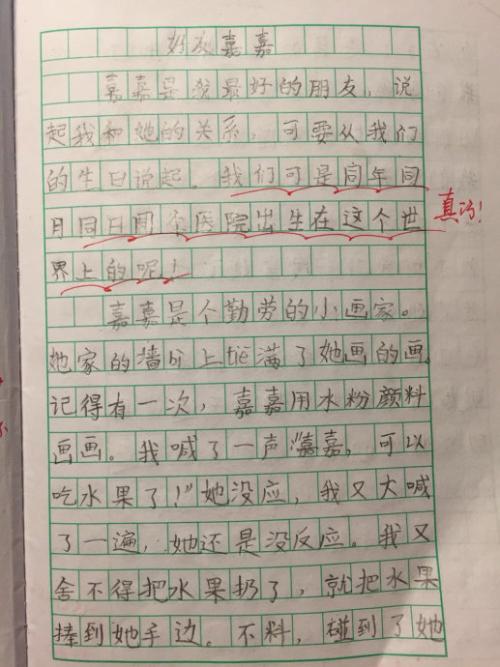 好友嘉嘉
嘉嘉是我最好的朋友，说
起我和她的关系，可要从我们
的生日说起。我们可是同年同
月同日同个医院出生在这个世
真巧！
界上的呢！
嘉嘉是个勤劳的小画家。
她家的墙bì上tiē满了她画的画。
记得有一次，嘉嘉用水粉颜料
画画。我喊了一声“嘉嘉，可以
吃水果了！”她没应，我又大喊
了一遍，她还是没反应。我又
舍不得把水果扔了，就把水果
捧到她手边。不料，碰到了她